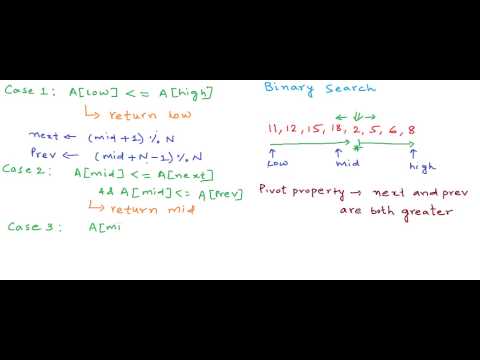 Case 1: A[low] <= A[high]
return low
next ← (mid+1) % N
Prev ← (mid+N-1) % N
Case 2: A[mid] <= A[next]
&& A[mid] <= A[Prev]
return mid
Case 3: A[mi
Binary Search
11, 12, 15, 18, 2, 5, 6, 8
Low mid high
Pivot property → next and prev
are both greater